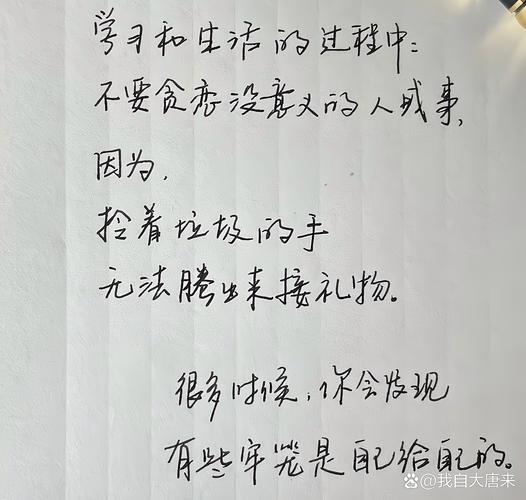 学习和生活的过程中：
不要贪恋没意义的人或事，
因为，
拎着垃圾的手
无法腾出来接礼物。
很多时候，你会发现
有些牢笼是自己给自己的。
@我自大唐来